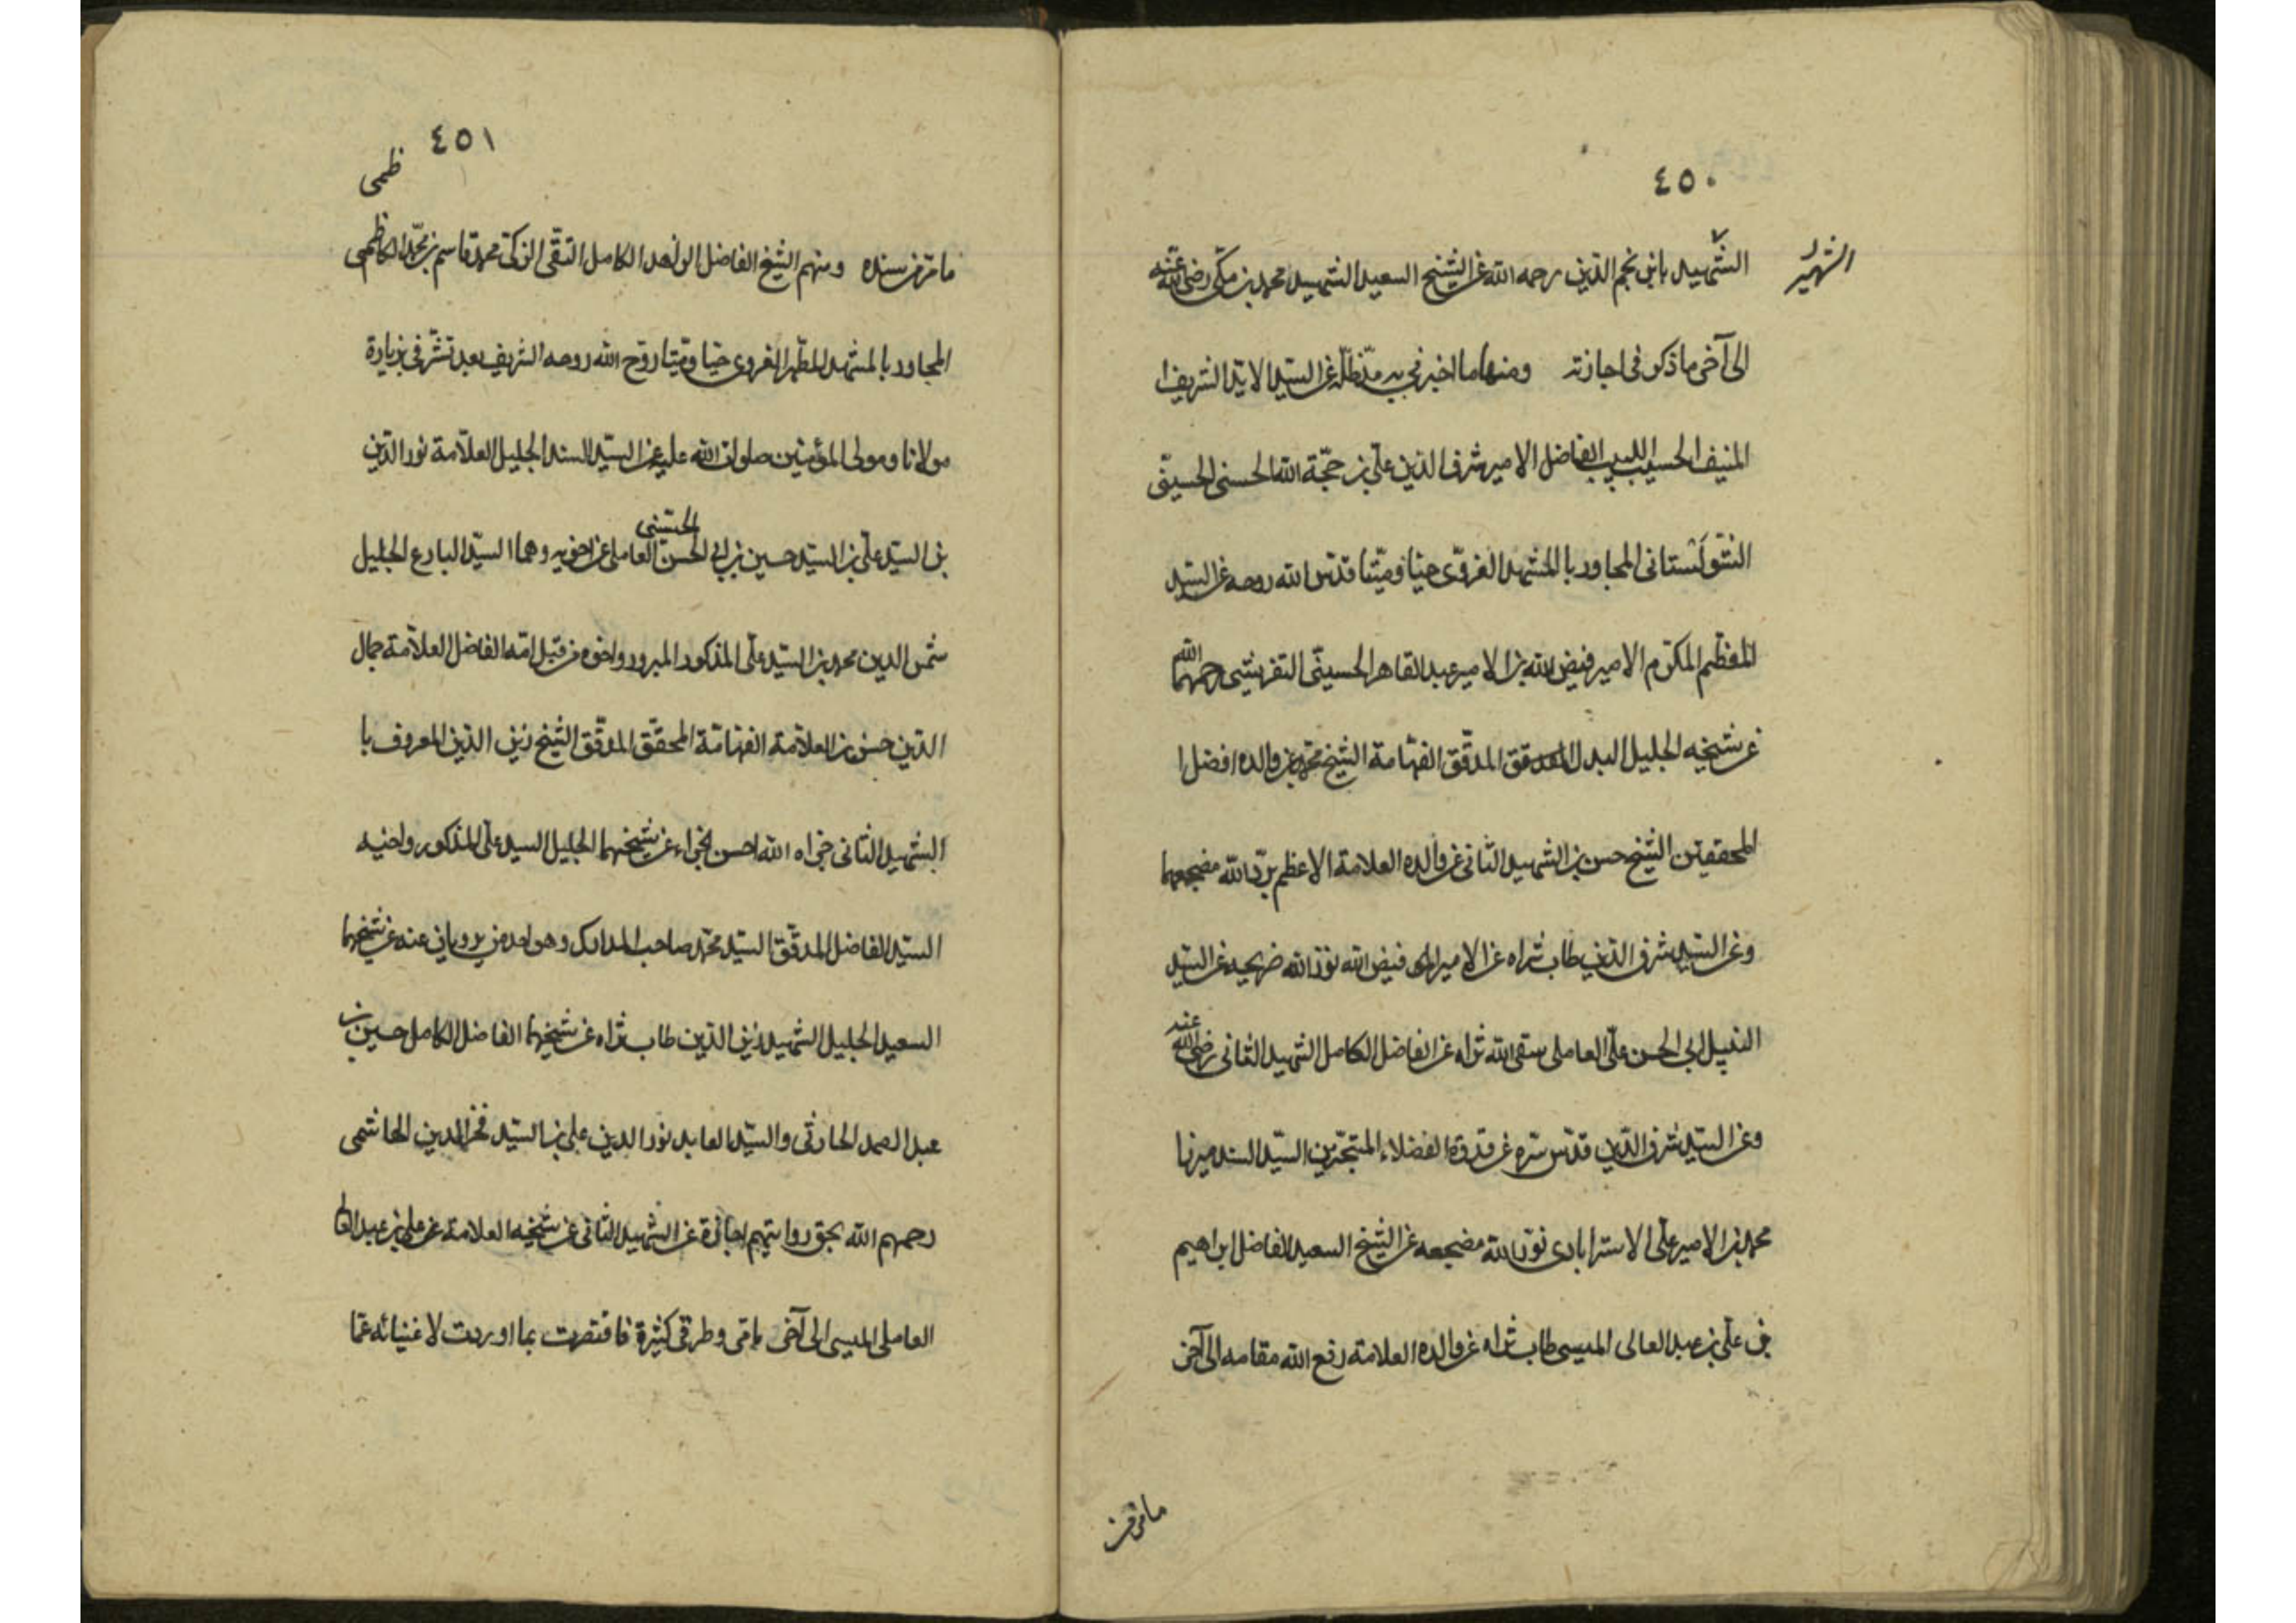 ٤٥٠
الشهير
الشهيد بابن نجم الدين رحمه الله عن الشيخ السعيد الشهيد محمد بن مكي رضي الله عنه
الى آخر ما ذكر في اجازته ومنها ما اخبرني به مد ظله عن السيد الايد الشريف ا
المنيف الحسيب اللبيب الفاضل الامير شرف الدين علي بن حجة الله الحسني الحسيني
الشولستاني المجاور بالمشهد الغروي حيا وميتا قدس الله روحه عن السيد
المعظم المكرم الامير فيض الله بن الامير عبد القاهر الحسيني التفريشي رحمهما الله
عن شيخه الجليل البدل المدقق الفهامة الشيخ محمد عن والده افضل ا
المحققين الشيخ حسن بن الشهيد الثاني عن والده العلامة الاعظم برد الله مضجعهما
وعن السيد شرف الدين طاب ثراه عن الامير فيض الله نور الله ضريحه عن السيد
النبيل ابي الحسن علي العاملي سقى الله ثراه عن الفاضل الكامل الشهيد الثاني رضي الله عنه
وعن السيد شرف الدين قدس سره عن قدوة الفضلاء المتبحرين السيد السند ميرزا
محمد بن الامير علي الاسترابادي نور الله مضجعه عن الشيخ السعيد الفاضل ابراهيم
بن علي بن عبد العالي الميسي طاب ثراه عن والده العلامة رفع الله مقامه الى آخر
ما مر من
٤٥١
ظمي
ما مر من سنده ومنهم الشيخ الفاضل الزاهد الكامل التقي الزكي محمد قاسم بن محمد الكاظمي
المجاور بالمشهد المطهر الغروي حيا وميتا روح الله روحه الشريف بعد تشرفي بزيارة
مولانا ومولى المؤمنين صلوات الله عليه عن السيد السند الجليل العلامة نور الدين
بن السيد علي بن السيد حسين بن ابي الحسن الحسيني العاملي عن اخويه وهما السيد البارع الجليل
شمس الدين محمد بن السيد علي المذكور المبرور واخوه من قبل امه الفاضل العلامة جمال
الدين حسن بن العلامة الفهامة المحقق المدقق الشيخ زين الدين المعروف با
الشهيد الثاني جزاه الله احسن الجزاء عن شيخهما الجليل السيد علي المذكور واخيه
السيد الفاضل المدقق السيد محمد صاحب المدارك وهو احد من يرويان عنه عن شيخهما
السعيد الجليل الشهيد زين الدين طاب ثراه عن شيخهما الفاضل الكامل حسين بن
عبد الصمد الحارثي والسيد العابد نور الدين علي بن السيد فخر الدين الهاشمي
رحمهم الله بحق روايتهم اجازة عن الشهيد الثاني عن شيخه العلامة عن علي بن عبد العا
العاملي الميسي الى آخر ما مر وطرقي كثيرة فاقتصرت بما اوردت لاغنيائه عما